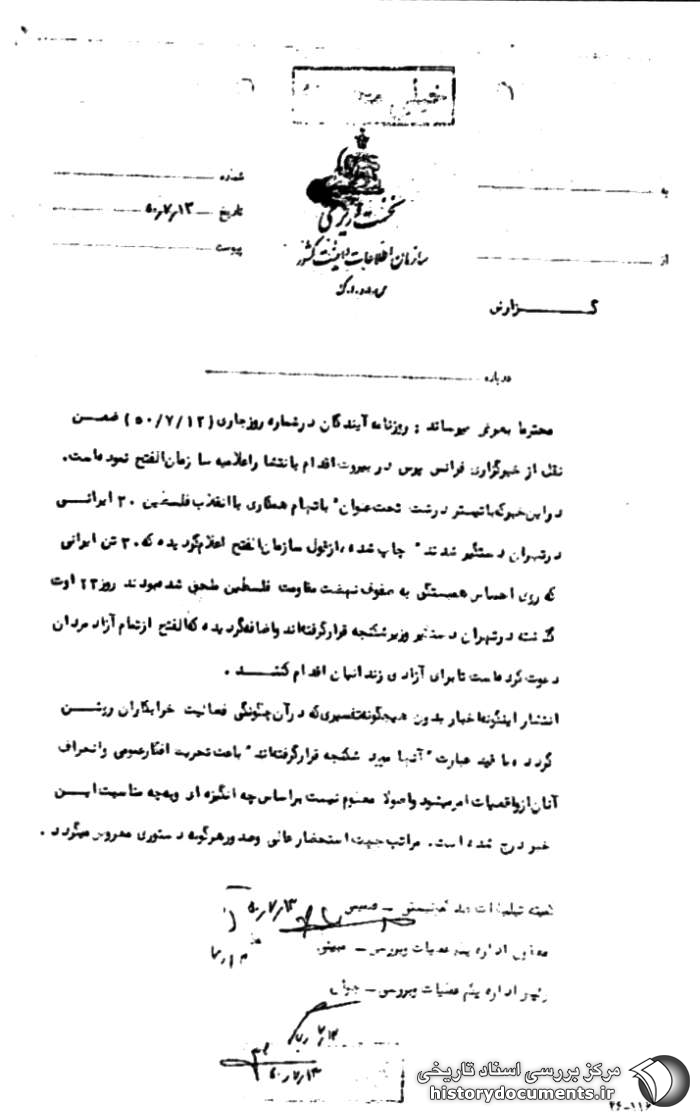 خیلی
شماره
به
تاریخ ۵۰٫۷٫۱۳
نخست وزیری
پیوست
از
سازمان اطلاعات و امنیت کشور
س.ا.و.ا.ک
گزارش
درباره
محترما بعرض میرساند : روزنامه آیندگان در شماره روز جاری (۵۰/۷/۱۲) ضمن
نقل از خبرگزاری فرانس پرس در بیروت اقدام بانتشار اعلامیه سازمان الفتح نموده است.
در این خبر که با تیتر درشت تحت عنوان "باتهام همکاری با انقلاب فلسطین ۳۰ ایرانی
در تهران دستگیر شدند" چاپ شده ، از قول سازمان الفتح اعلام گردیده که ۳۰ تن ایرانی
که روی احساس همبستگی به صفوف نهضت مقاومت فلسطین ملحق شده بودند روز ۲۳ اوت
گذشته در تهران دستگیر و زیر شکنجه قرار گرفته اند و اضافه گردیده که الفتح از تمام آزاد مردان
دعوت کرده است تا برای آزادی زندانیان اقدام کنند .
انتشار اینگونه اخبار بدون هیچگونه تفسیری که در آن چگونگی فعالیت خرابکاران روشن
گردد ، با قید عبارت "آنها مورد شکنجه قرار گرفته اند" باعث تحریک افکار عمومی و انحراف
آنان از واقعیات امر میشود و اصولا معلوم نیست بر اساس چه انگیزه ای و به چه مناسبت این
خبر درج شده است. مراتب جهت استحضار عالی و صدور هرگونه دستوری معروض میگردد .
۵۰٫۷٫۱۳
معاون اداره یکم عملیات و بررسی –
رئیس اداره یکم عملیات و بررسی – جوان
۷٫۱۴
۵۰٫۷٫۱۳
مرکز بررسی اسناد تاریخی
historydocuments.ir
۲۶-۱۱۶